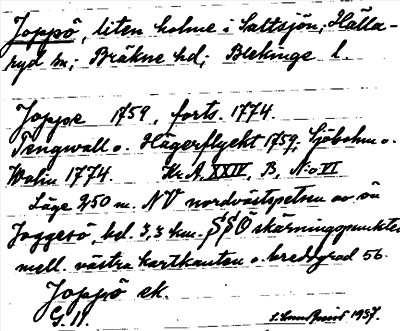 Joppö, liten holme i Saltsjön, Hälla-
ryd sn; Bräkne hd; Blekinge l.
Joppoe 1759, forts. 1774.
Tengwall o. Hägerflyckt 1759; Sjöbohm o.
Walin 1774. Kr.A. XXIV, B, N:o VI
Läge 250 m. NV nordvästspetsen av ön
Joggesö, bel. 3,3 km. SSÖ skärningspunkten
mell. västra kartkanten o. breddgrad 56.
Joppö ek.
G. 11. 1937.